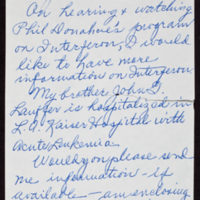 On hearing & watching
Phil Donahue's program
on Interferon, I would
like to have more
information on Interferon.
My brother John D.
Lauffer is hospitalized in
L.A. Kaiser Hospital with
Acute Leukemia.
Would you please send
me information - if
available - am enclosing